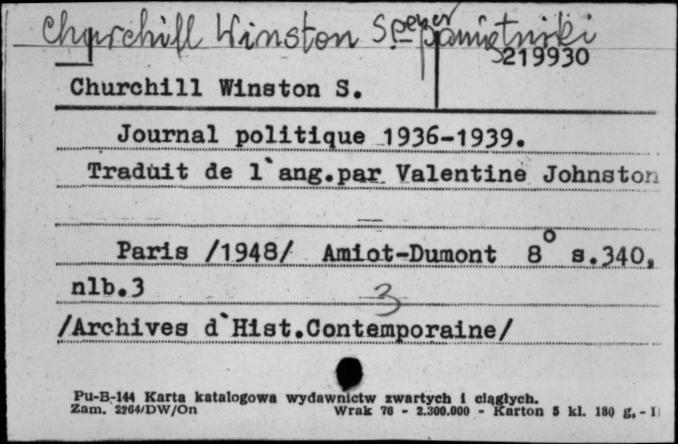 Churchill Winston Spencer pamiętniki
219930
Churchill Winston S.
Journal politique 1936-1939.
Traduit de l`ang.par Valentine Johnston
Paris /1948/ Amiot-Dumont 8° s.340,
nlb.3
3
/Archives d`Hist.Contemporaine/
Pu-B-144 Karta katalogowa wydawnictw zwartych i ciągłych.
Zam. 2264/DW/On Wrak 76 - 2.300.000 - Karton 5 kl. 180 g, -